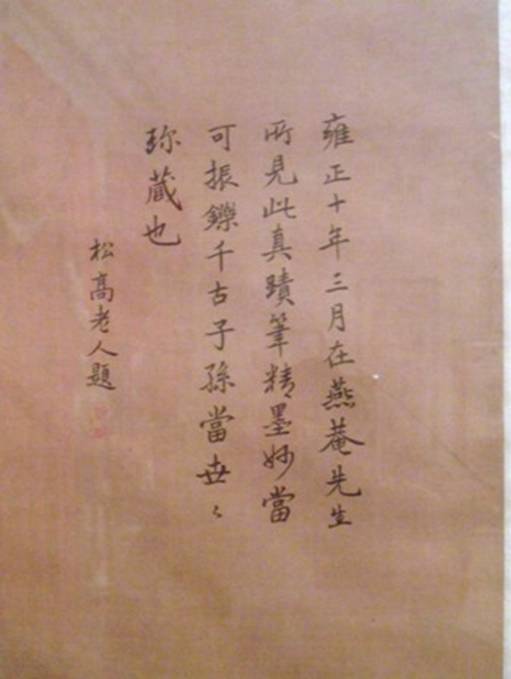 雍正十年三月在燕菴先生
所見此真蹟筆精墨妙當
可振鑠千古子孫當世〻
珎蔵也
松高老人題